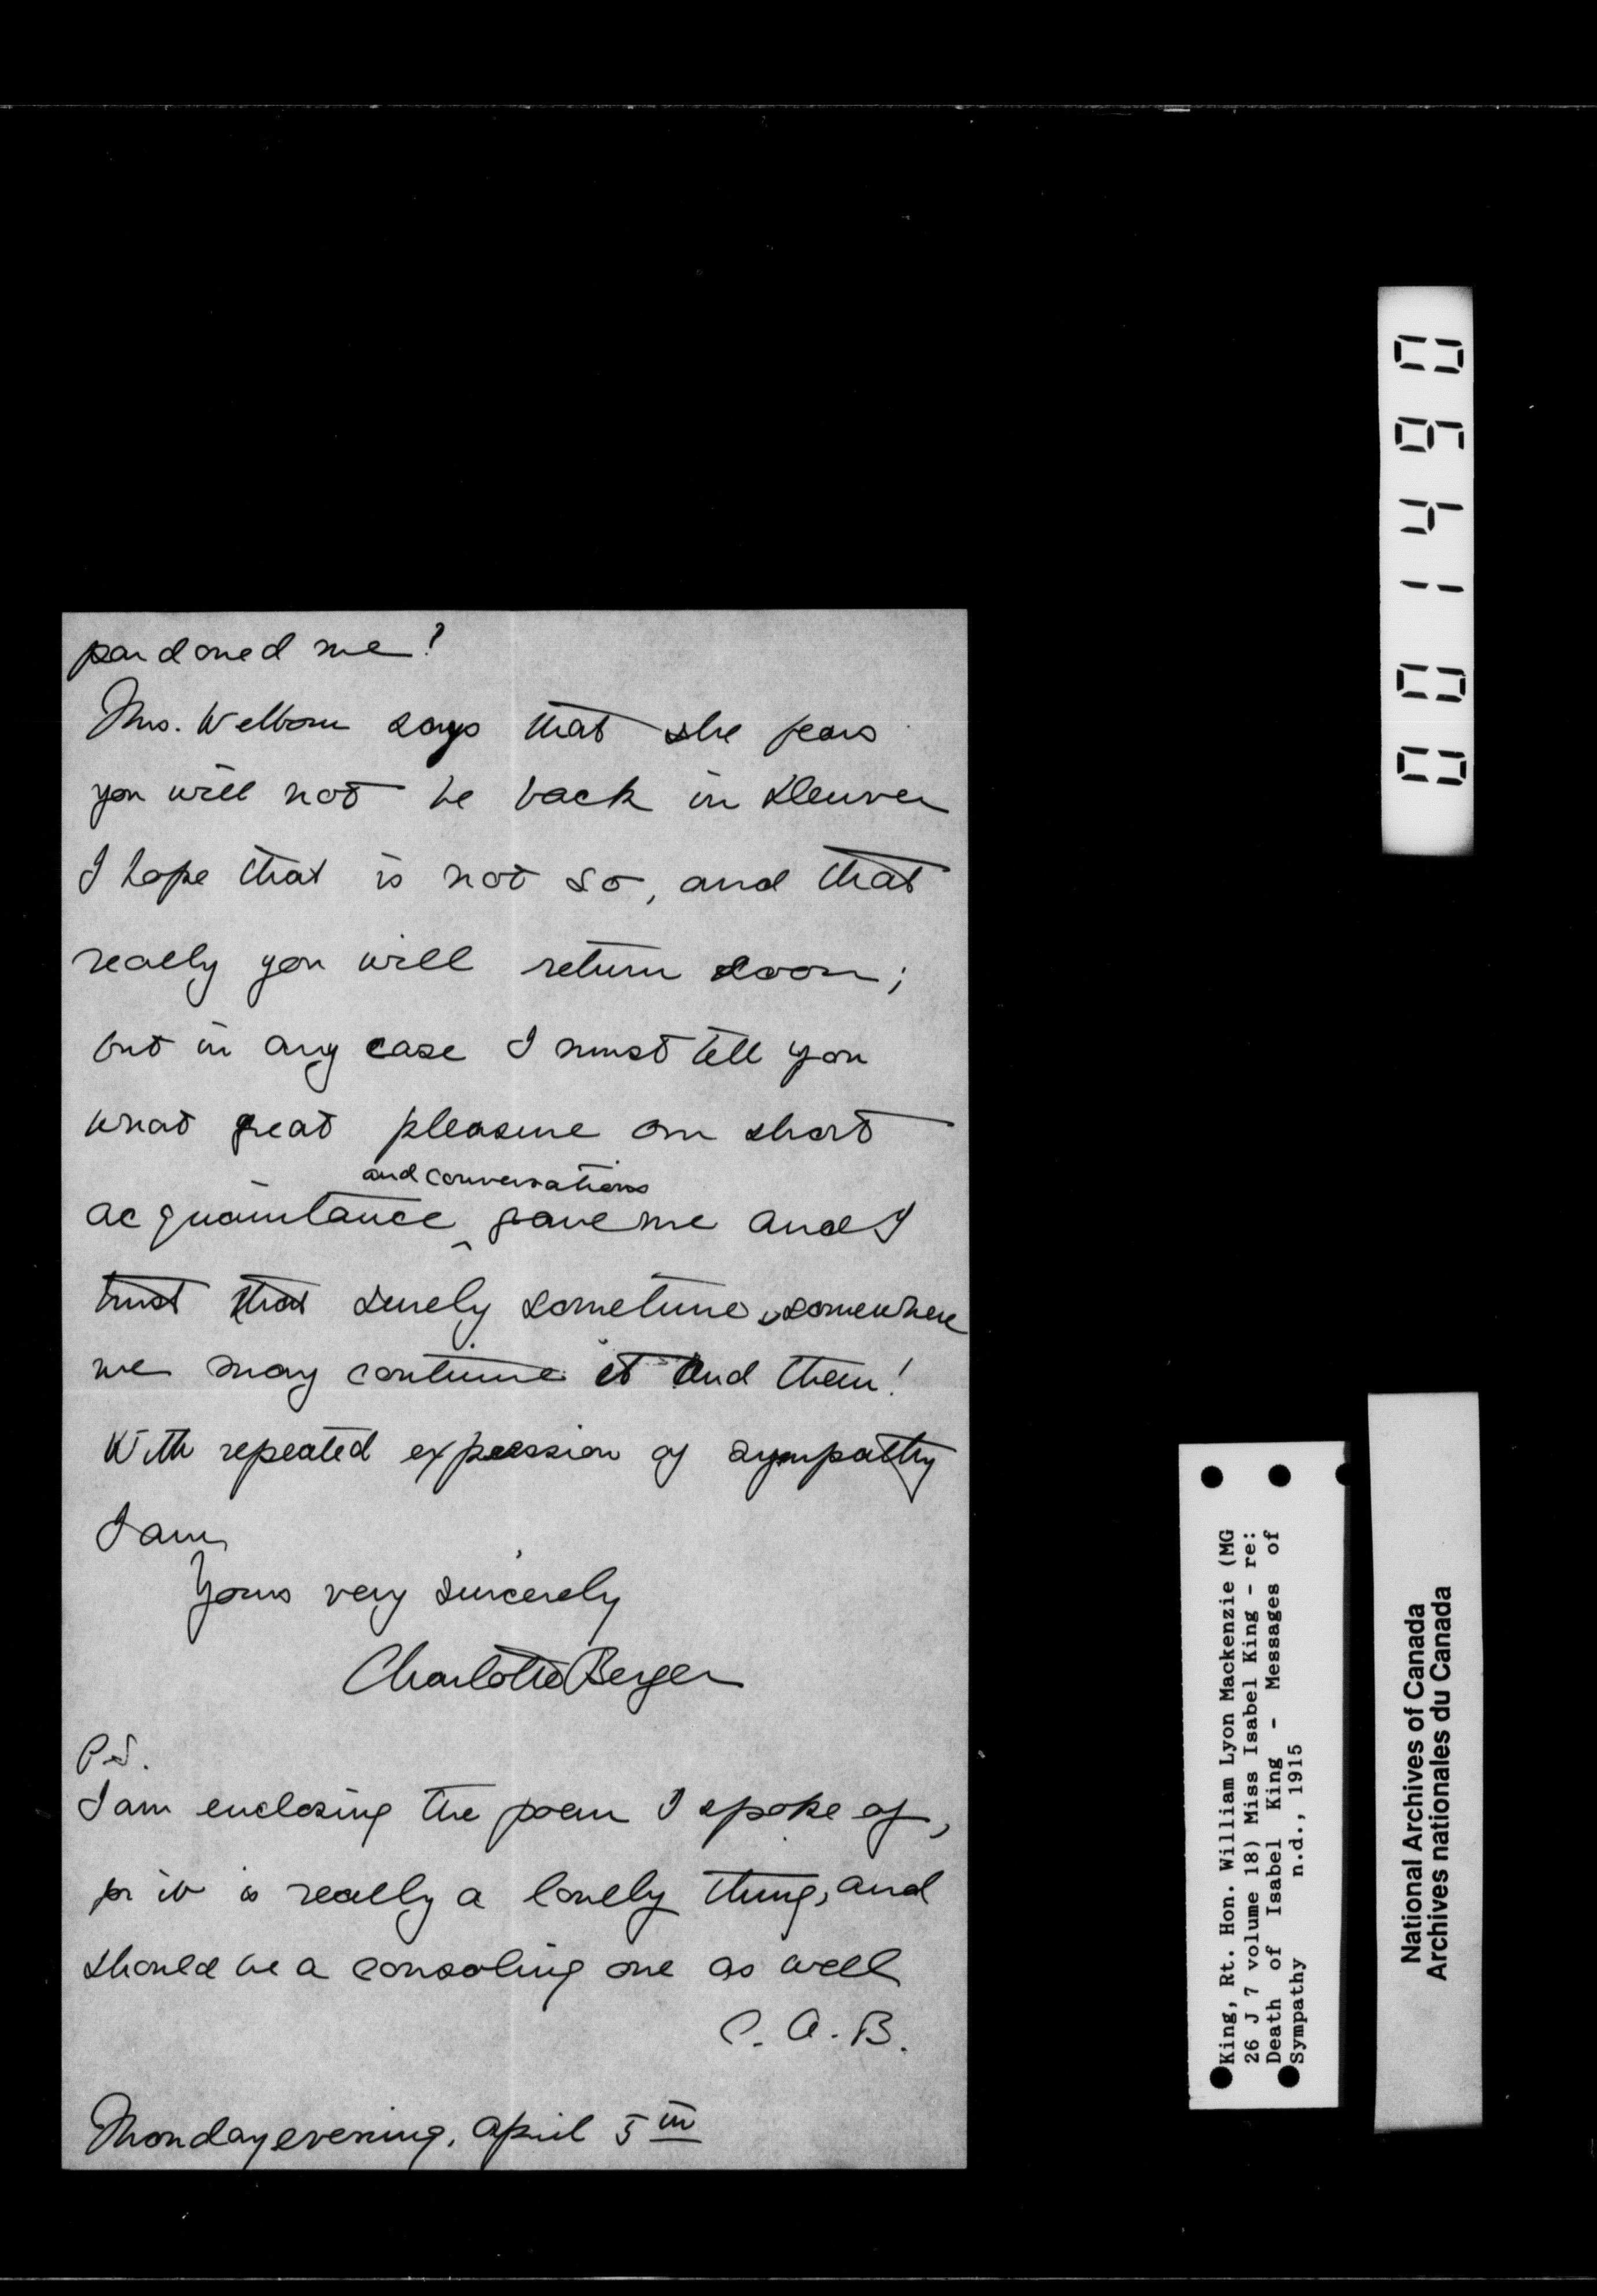 pardoned me?
Mrs. Welborn says that she fears
you will not be back in Denver
I hope that is not so, and that
really you will return soon;
but in any case I must tell you
what great pleasure our short
and conversations
acquaintance ^ gave me and I
trust that surely sometime, somewhere
we may continue it and them!
With repeated expression of sympathy
I am,
Yours very sincerely
Charlotte Berger
P.S.
I am enclosing the poem I spoke of,
for it is really a lovely thing, and
should be a consoling one as well
C. A. B.
Monday evening, April 5th
001490
King, Rt. Hon. William Lyon Mackenzie (MG
26 J 7 volume 18) Miss Isabel King - re:
Death of Isabel King - Messages of
Sympathy n.d., 1915
National Archives of Canada
Archives nationales du Canada